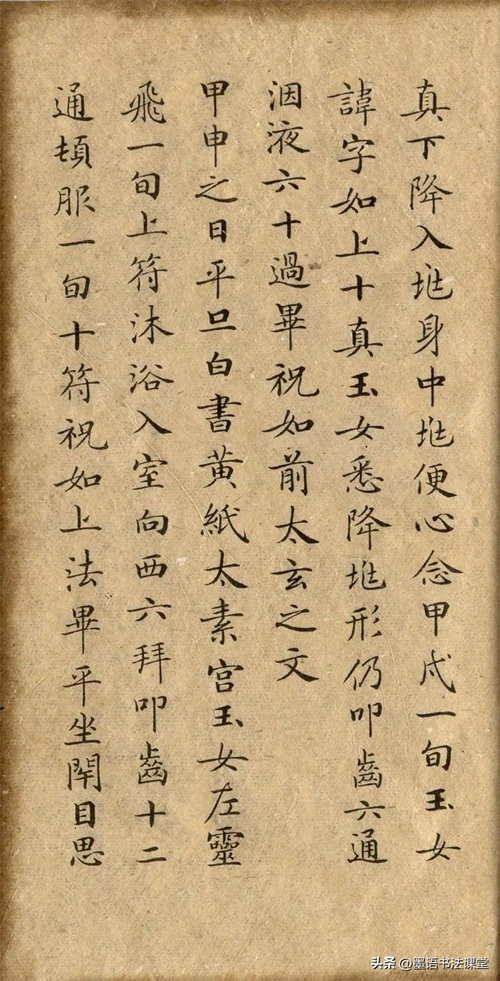 真下降入兆身中兆便心念甲戌一旬玉女
諱字如上十真玉女悉降兆形仍叩齒六通
咽液六十過畢祝如前太玄之文
甲申之日平旦白書黃紙太素宮玉女左靈
飛一旬上符沐浴入室向西六拜叩齒十二
通頓服一旬十符祝如上法畢平坐閉目思
头条 @墨语书法课堂